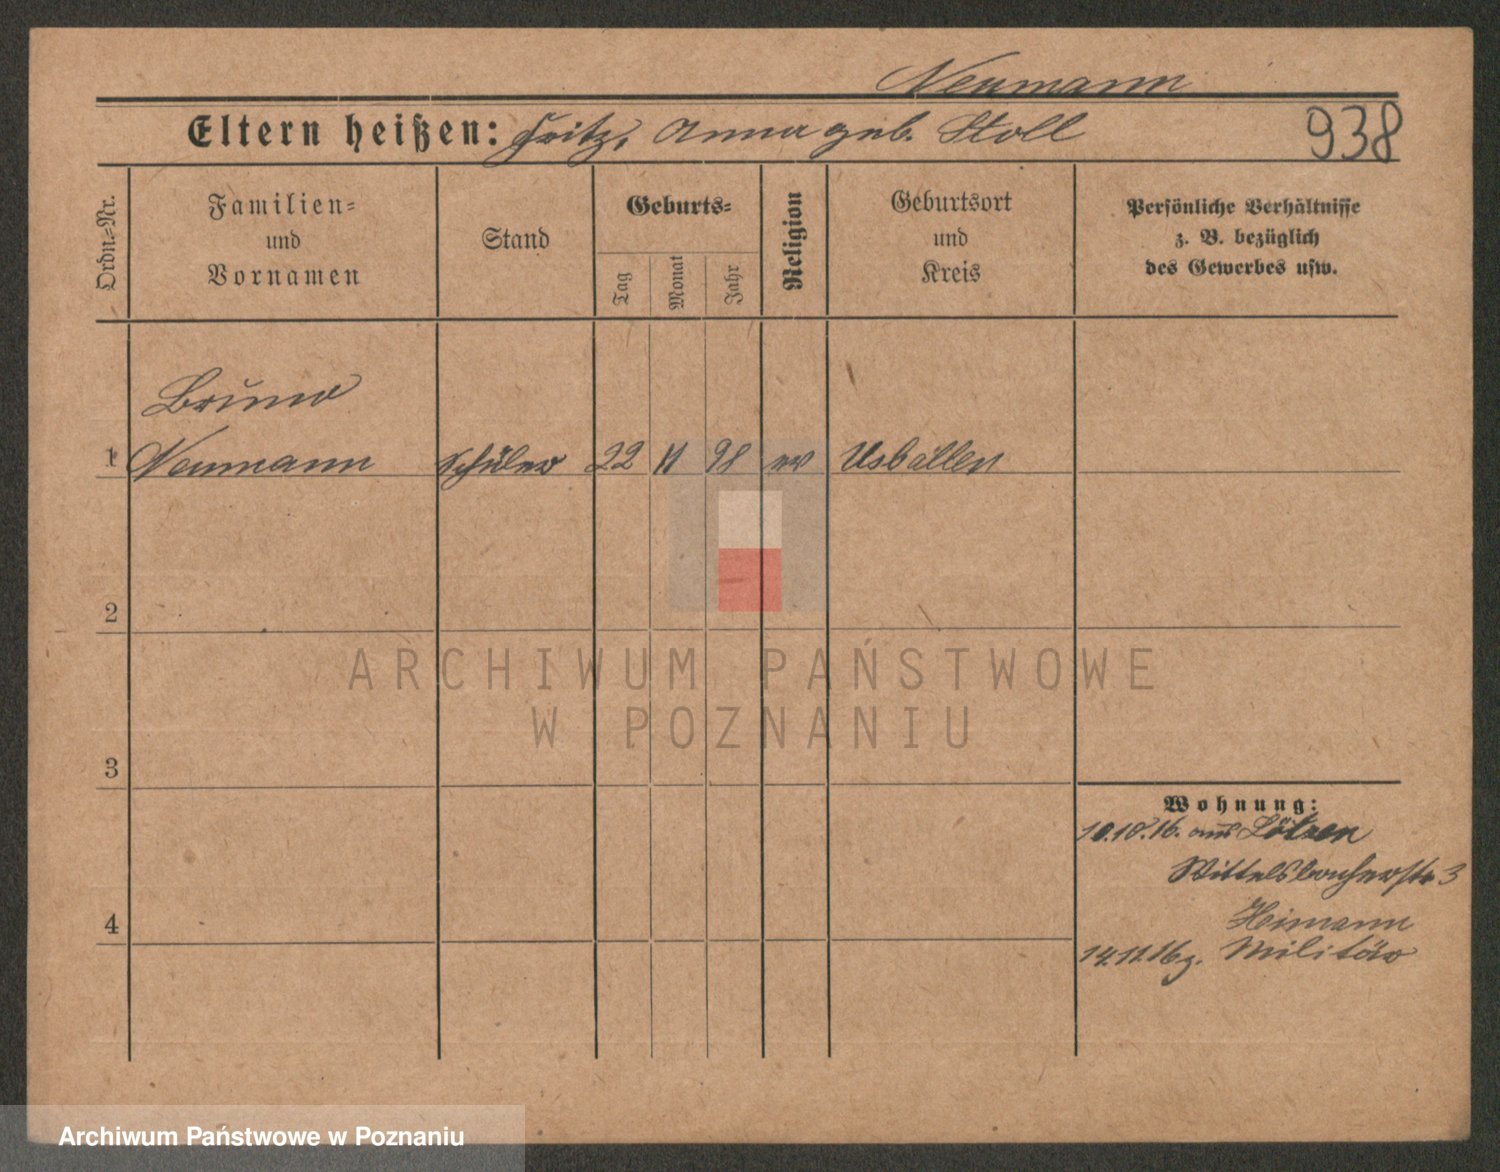 Neumann
Eltern heißen: Fritz, Anna geb. Stoll
938
Ordn.=Nr.
Familien=
und
Vornamen
Stand
Geburts=
Tag
Monat
Jahr
Religion
Geburtsort
und
Kreis
Persönliche Verhältnisse
z. B. bezüglich
des Gewerbes usw.
Bruno
1 Neumann Schüler 22 11 98 ev Usballen
2
ARCHIWUM PAŃSTWOWE
W POZNANIU
3
Wohnung:
10.10.16. aus Lötzen
Wittelsbacherstr 3
Heimann
4
14.11.16 z. Militär
Archiwum Państwowe w Poznaniu